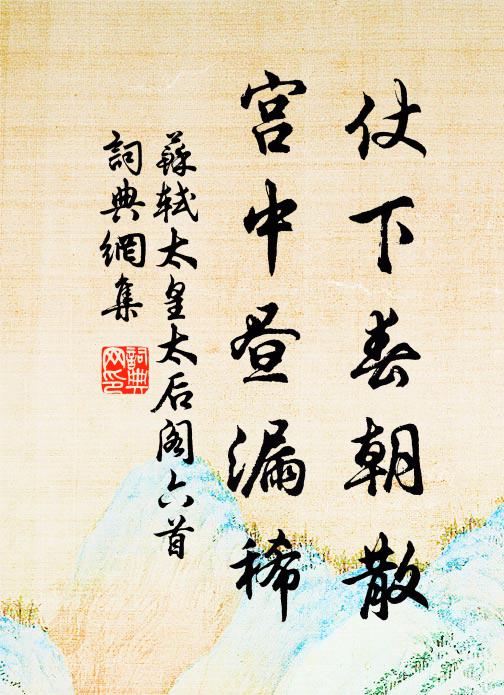 仗下春朝散
宫中昼漏稀
蘇軾太皇太后阁六首
詞典網集
詞典网印